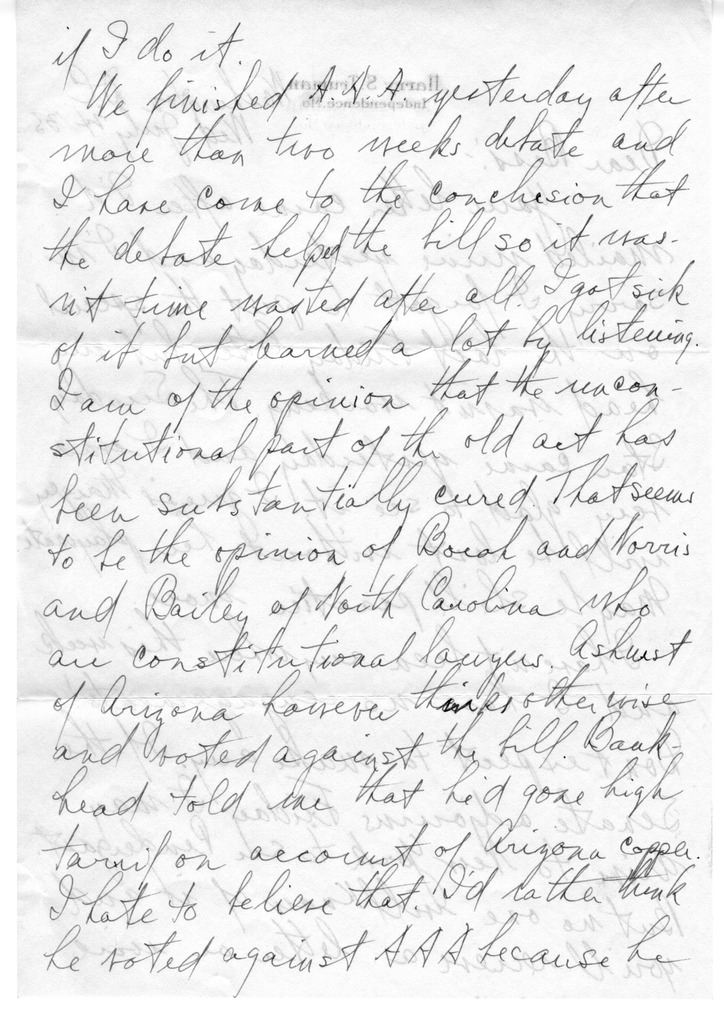 if I do it.
We finished A.A.A yesterday after
more than two weeks debate and
I have come to the conclusion that
the debate helped the bill so it was-
n't time wasted after all. I got sick
of it but learned a lot by listening.
I am of the opinion that the uncon-
stitutional part of the old act has
been substantially cured. That seems
to be the opinion of Borah and Norris
and Bailey of North Carolina who
are constitutional lawyers. Ashurst
of Arizona however thinks otherwise
and voted against the bill. Bank-
head told me that he'd gone high
tariff on account of Arizona copper.
I hate to believe that. I'd rather think
he voted against AAA because he